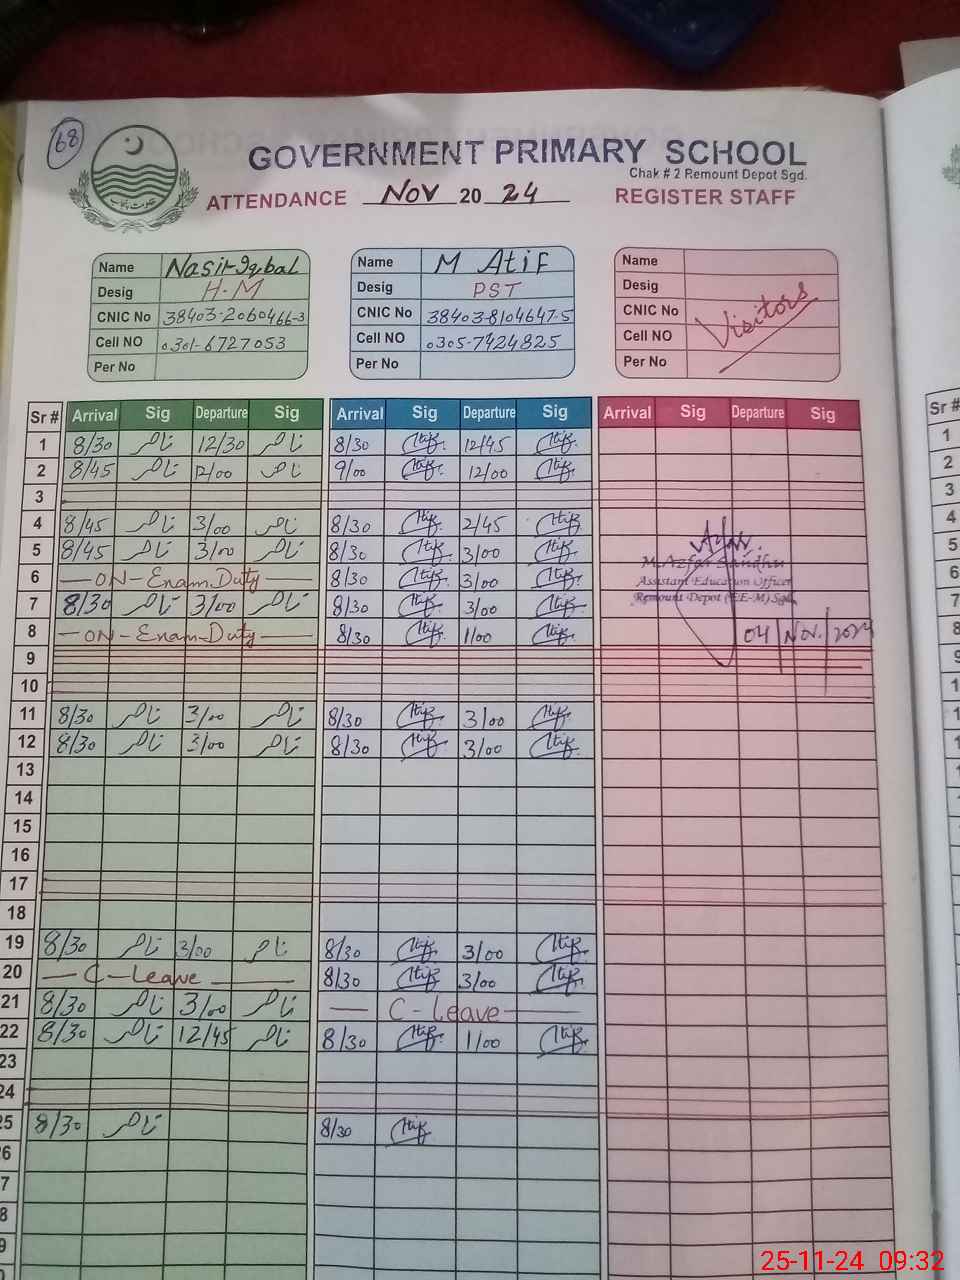 68
GOVERNMENT PRIMARY SCHOOL
Chak # 2 Remount Depot Sgd.
ATTENDANCE Nov 2024 REGISTER STAFF
حکومت پنجاب
Name Nasir Iqbal
Desig H-M
CNIC No 38403-2060466-3
Cell NO 0301-6727053
Per No
Name M Atif
Desig PST
CNIC No 38403-8104647-5
Cell NO 0305-7424825
Per No
Name
Desig
CNIC No
Cell NO
Per No
Visitors
Sr # Arrival Sig Departure Sig Arrival Sig Departure Sig Arrival Sig Departure Sig
1 8/30 ناصر 12/30 ناصر 8/30 Atif 12/45 Atif
2 8/45 ناصر 12/00 ناصر 9/00 Atif 12/00 Atif
3
4 8/45 ناصر 3/00 ناصر 8/30 Atif 2/45 Atif
5 8/45 ناصر 3/00 ناصر 8/30 Atif 3/00 Atif
6 — ON-Exam.Duty — 8/30 Atif 3/00 Atif
7 8/30 ناصر 3/00 ناصر 8/30 Atif 3/00 Atif
8 — ON-Exam-Duty — 8/30 Atif 1/00 Atif
M. Azfar Sandhu
Assistant Education Officer
Remount Depot (EE-M) Sgd.
04/Nov./2024
9
10
11 8/30 ناصر 3/00 ناصر 8/30 Atif 3/00 Atif
12 8/30 ناصر 3/00 ناصر 8/30 Atif 3/00 Atif
13
14
15
16
17
18
19 8/30 ناصر 3/00 ناصر 8/30 Atif 3/00 Atif
20 — C-Leave — 8/30 Atif 3/00 Atif
21 8/30 ناصر 3/00 ناصر — C-Leave —
22 8/30 ناصر 12/45 ناصر 8/30 Atif 1/00 Atif
23
24
25 8/30 ناصر 8/30 Atif
6
7
8
9
Sr #
1
2
3
4
5
6
7
8
9
25-11-24 09:32